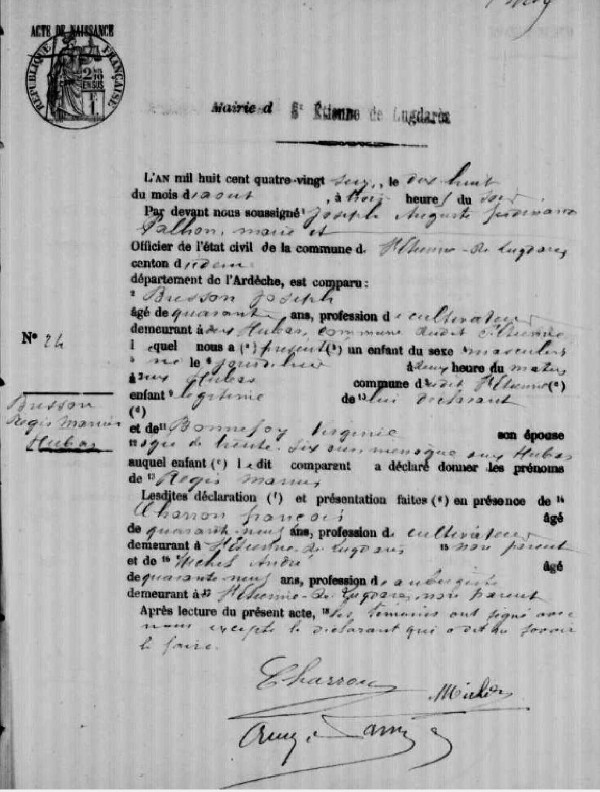 ACTE DE NAISSANCE
RÉPUBLIQUE FRANÇAISE
Mairie d St Étienne de Lugdarès
L'AN mil huit cent quatre-vingt seize, le dix huit
du mois d'aout, à trois heures du soir
Par devant nous soussigné Joseph Auguste Ferdinand
Palhon, maire et
Officier de l'état civil de la commune de St Etienne-de-Lugdares
canton d'idem
département de l'Ardèche, est comparu :
Bresson Joseph
âgé de quarante ans, profession de cultivateur
demeurant à aux Hubas, commune dudit St Etienne
lequel nous a (a) présenté (b) un enfant du sexe masculin
né le jourdhui à deux heure du matin
à aux Hubas commune dudit St Etienne (c)
enfant légitime de lui déclarant
(d)
et de Bonnefoy Virginie son épouse
agée de trente-six ans menagère aux Hubas
auquel enfant (e) le dit comparant a déclaré donner les prénoms
de Régis Marius
Lesdites déclaration (f) et présentation faites (g) en présence de
Charron françois âgé
de quarante neuf ans, profession de cultivateur
demeurant à St Etienne-de-Lugdares, non parent
et de Michel André âgé
de quarante neuf ans, profession d'aubergiste
demeurant à St Etienne-de-Lugdares, non parent
Après lecture du présent acte, les témoins ont signé avec
nous excepté le déclarant qui a dit ne savoir
le faire.
No 24
Bresson
Régis Marius
Hubas
Charron
Michel